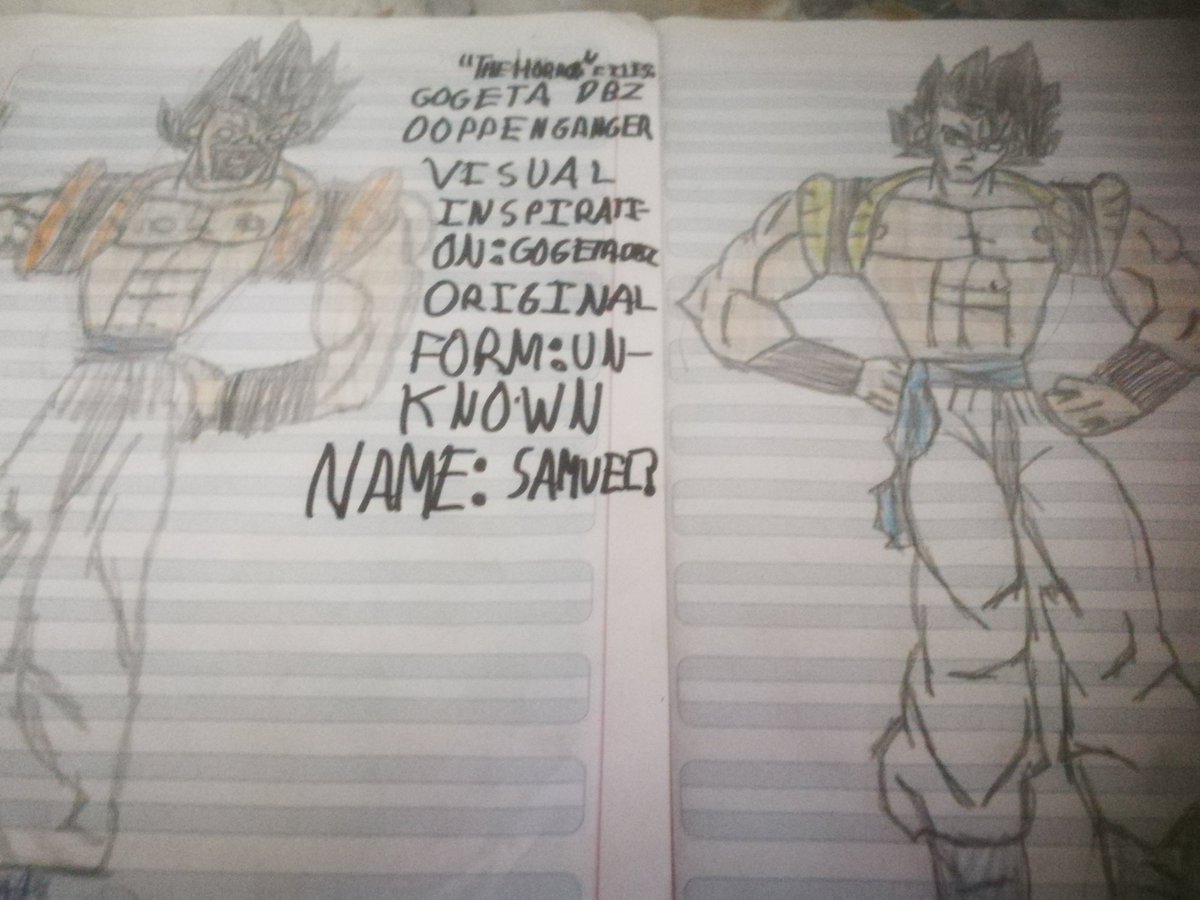 "THE HORROR" FILES
GOGETA DBZ
DOPPENGANGER
VISUAL
INSPIRATI-
ON:GOGETA DBZ
ORIGINAL
FORM:UN-
KNOWN
NAME: SAMUEL?